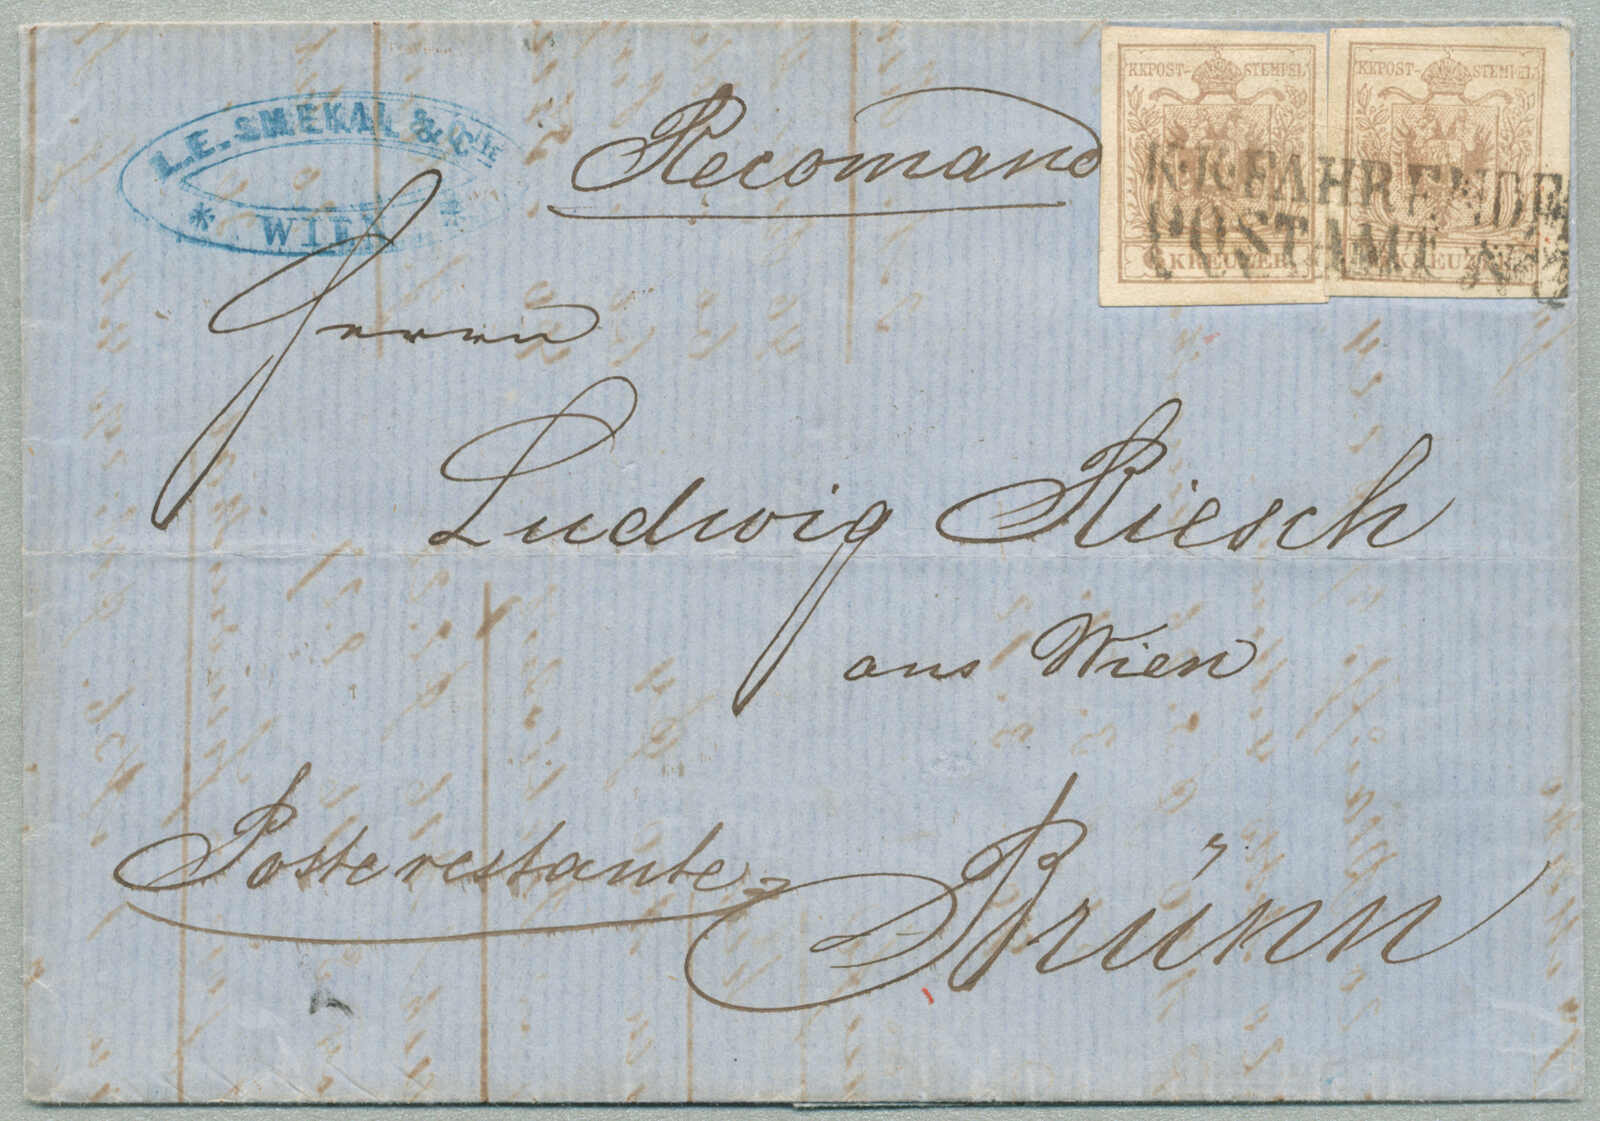 L.E. SMEKAL & C^IE
* WIEN *
Recomand
KKPOST-STEMPEL
6 KREUZER
KKPOST-STEMPEL
KREUZER
K.K. FAHRENDE
POSTAMT No
Herrn
Ludwig Riesch
aus Wien
Poste restante
Brünn